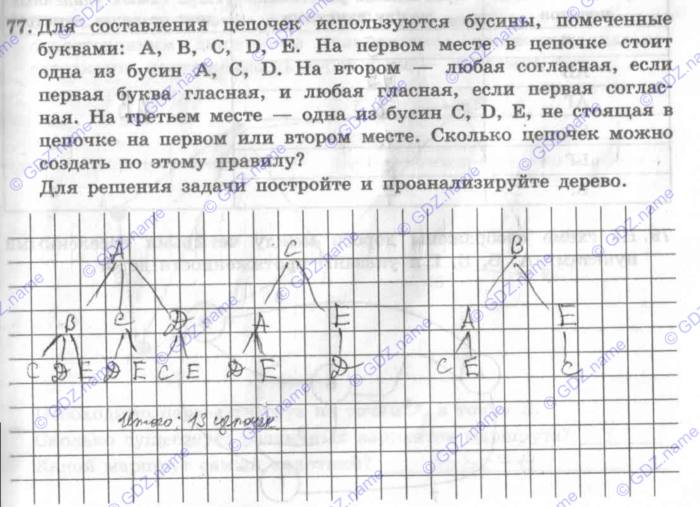 77. Для составления цепочек используются бусины, помеченные
буквами: A, B, C, D, E. На первом месте в цепочке стоит
одна из бусин A, C, D. На втором — любая согласная, если
первая буква гласная, и любая гласная, если первая соглас-
ная. На третьем месте — одна из бусин C, D, E, не стоящая в
цепочке на первом или втором месте. Сколько цепочек можно
создать по этому правилу?
Для решения задачи постройте и проанализируйте дерево.
A C B
B C D A E A E
C D E D E C E D E D C E C
Итого: 13 цепочек
© GDZ.name